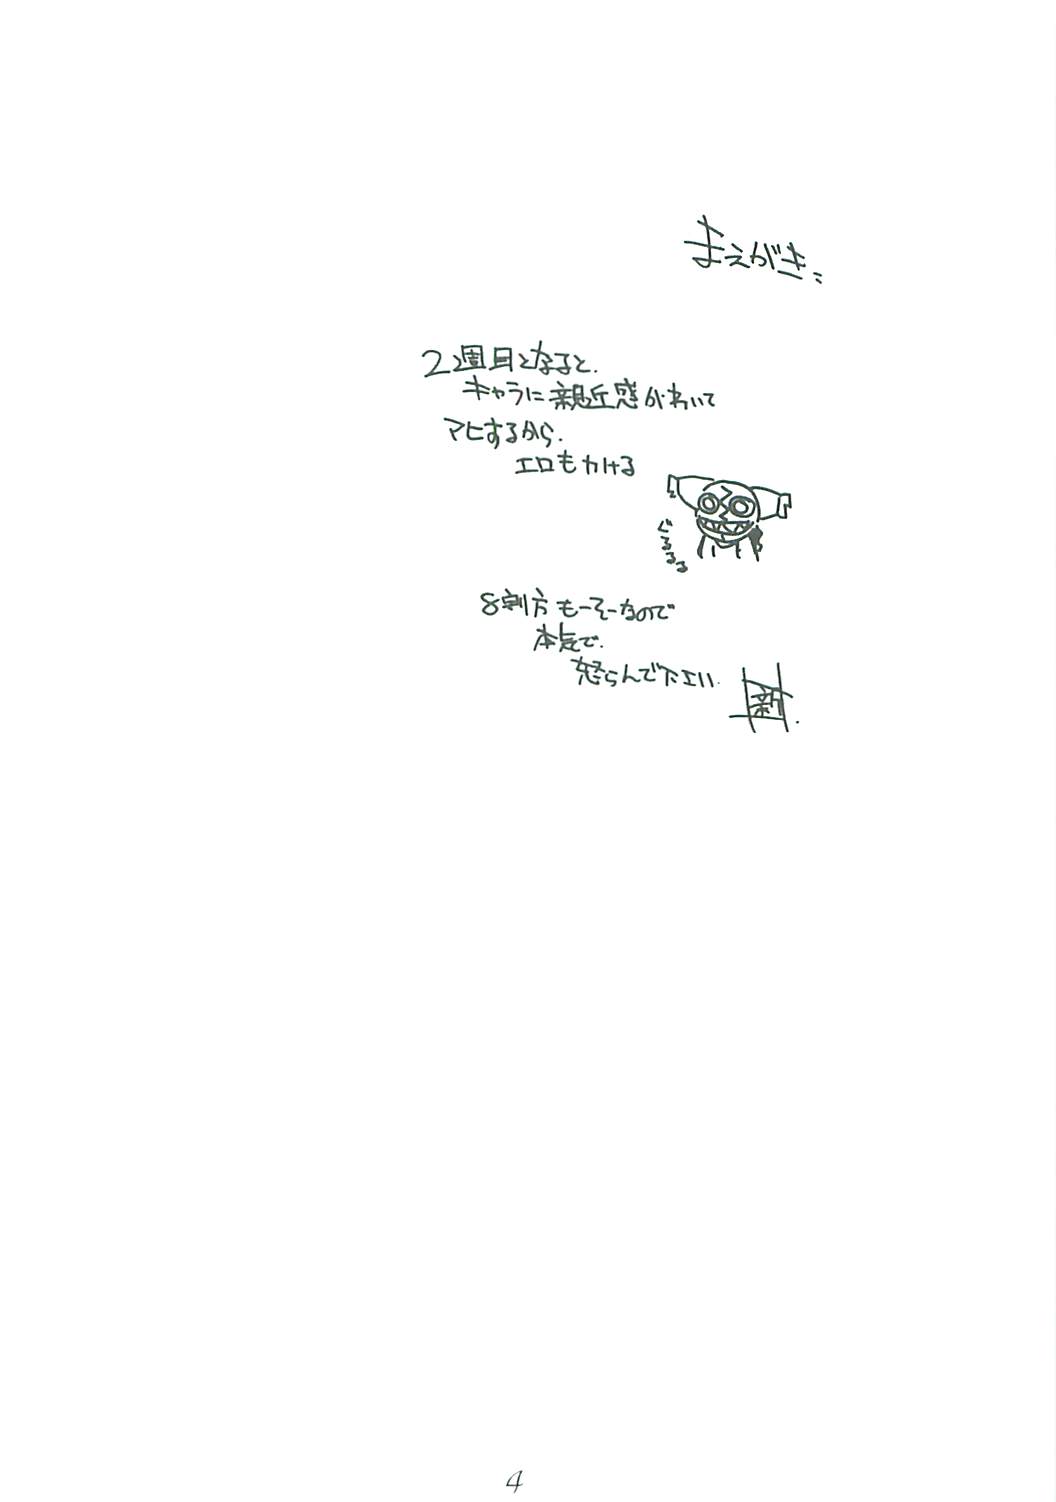 まえがき:
2週目となると.
キャラに親近感がわいて
マヒするから.
エロもかける
ぐるるる
8割方 もーそーなので
本気で.
怒らんで下エい.
新.
4